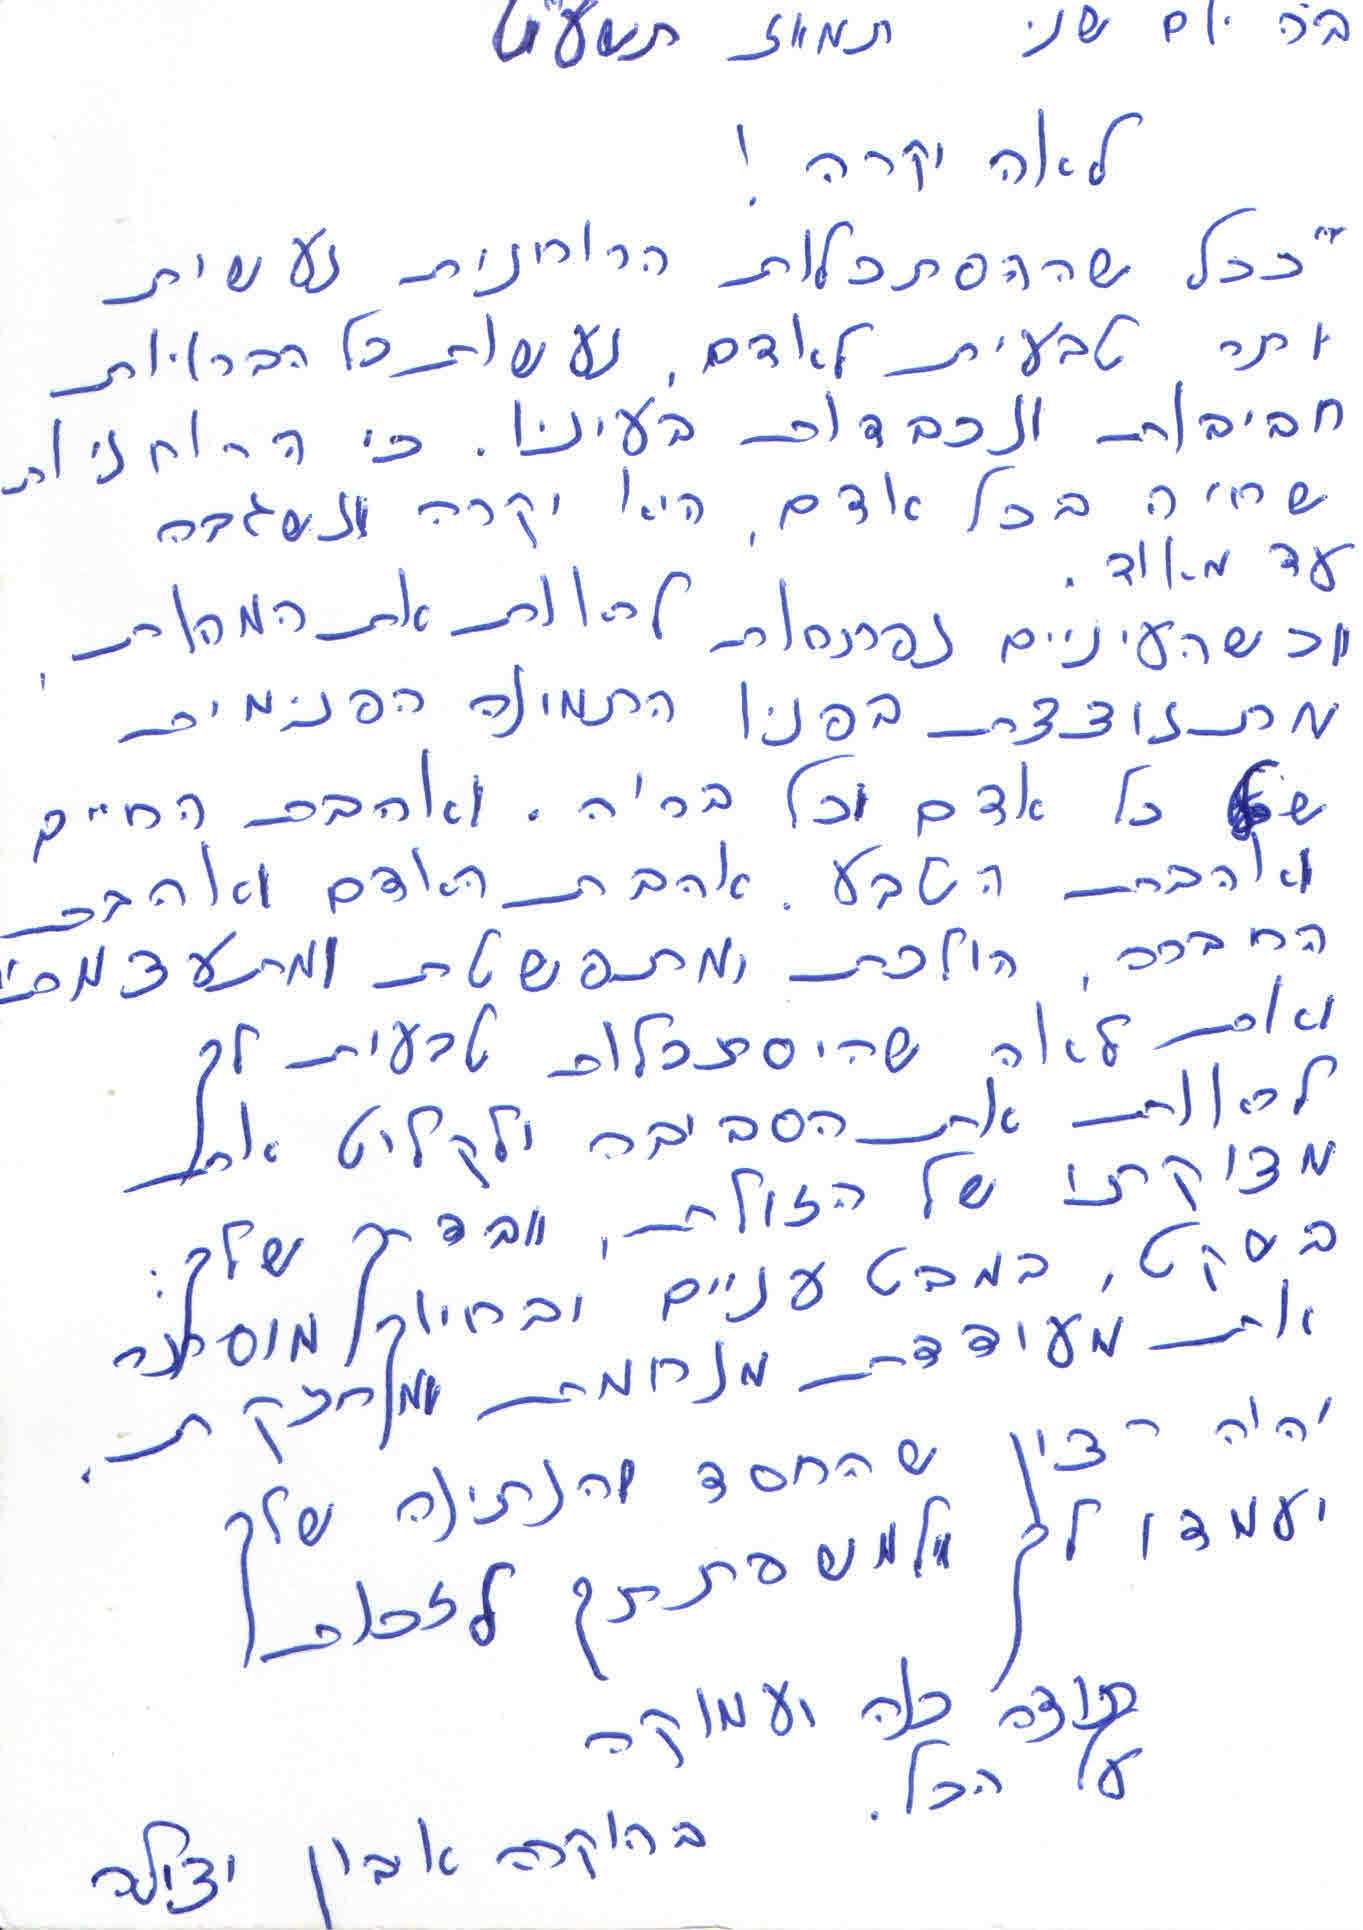 ב"ה יום שני תמוז תשע"ט
לאה יקרה!
"ככל שההסתכלות הרוחנית נעשית
יותר טבעית לאדם, נעשות כל הבריות
חביבות ונכבדות בעיניו. כי הרוחניות
שחיה בכל אדם, היא יקרה ונשגבה
עד מאוד.
וכשהעיניים נפתחות לראות את המהות,
מתנוצצת בפניו התמונה הפנימית
של כל אדם וכל בריה. ואהבת החיים
ואהבת הטבע. אהבת האדם ואהבת
החברה, הולכת ומתפשטת ומתעצמת"
ואת לאה שהיסתכלות טבעית לך
לראות את הסביבה ולקליט את
מצוקתו של הזולת, ובדרך שלך:
בשקט, במבט עניים ובחיוך מוסתר
את מעודדת מנחמת ומחזקת.
יהיה רצון שהחסד והנתינה שלך
יעמדו לך ולמשפחתך לזכות
תודה כלה ועמוקה
על הכל.
בהוקרה אבון יצילה